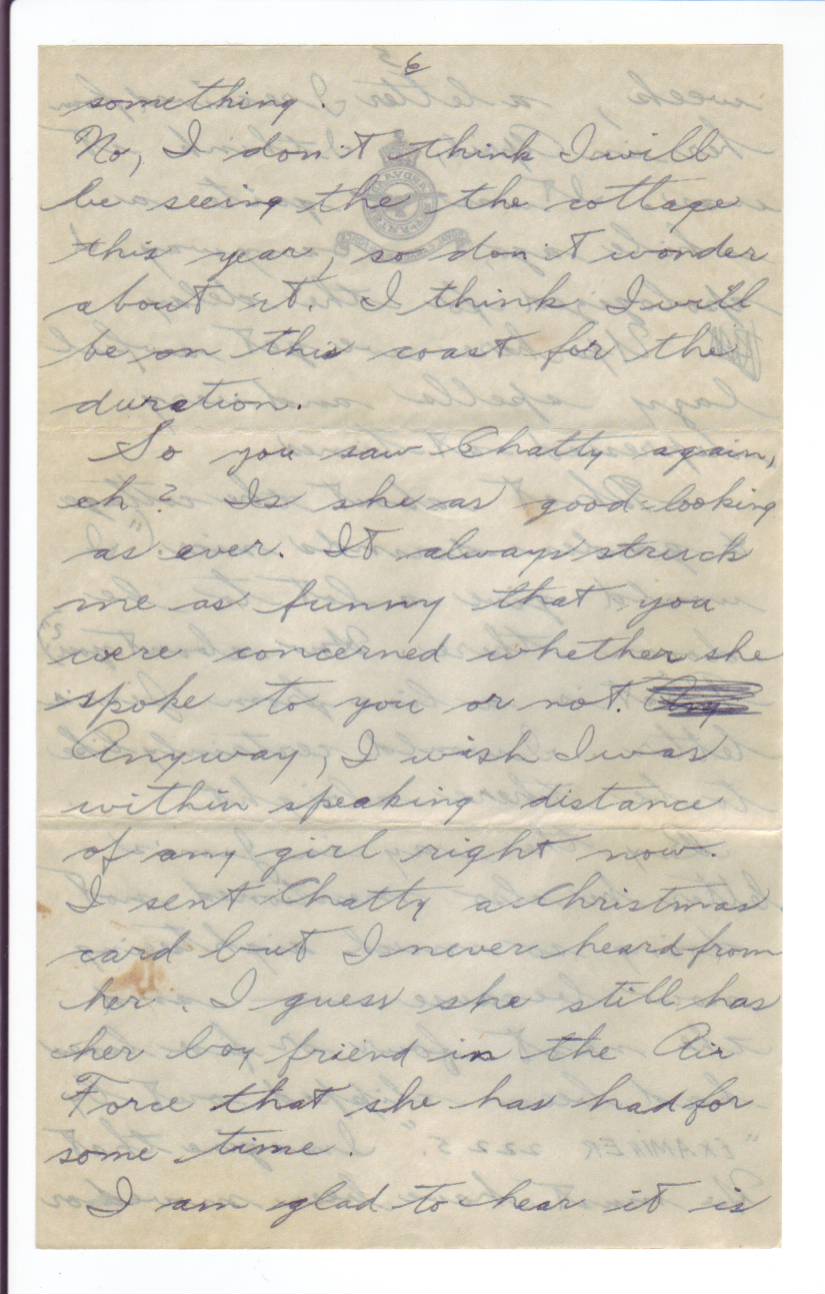 6
something.
No, I don't think I will
be seeing the the cottage
this year, so don't wonder
about it. I think I will
be on this coast for the
duration.
So you saw Chatty again,
eh? Is she as good-looking
as ever. It always struck
me as funny that you
were concerned whether she
spoke to you or not.
Anyway, I wish I was
within speaking distance
of any girl right now.
I sent Chatty a Christmas
card but I never heard from
her. I guess she still has
her boy friend in the Air
Force that she has had for
some time.
I am glad to hear it is